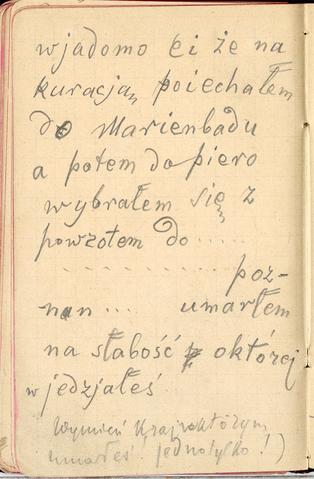 wjadomo ci że na
kuracjan poiechałem
do Marienbadu
a potem dopiero
wybrałem się z
powrotem do .....
. . . . . . . . . . poz-
nan ... umarłem
na słabość o której
wjedzjałeś
Wymień kraj wktórym
umarłeś jednotylko!)